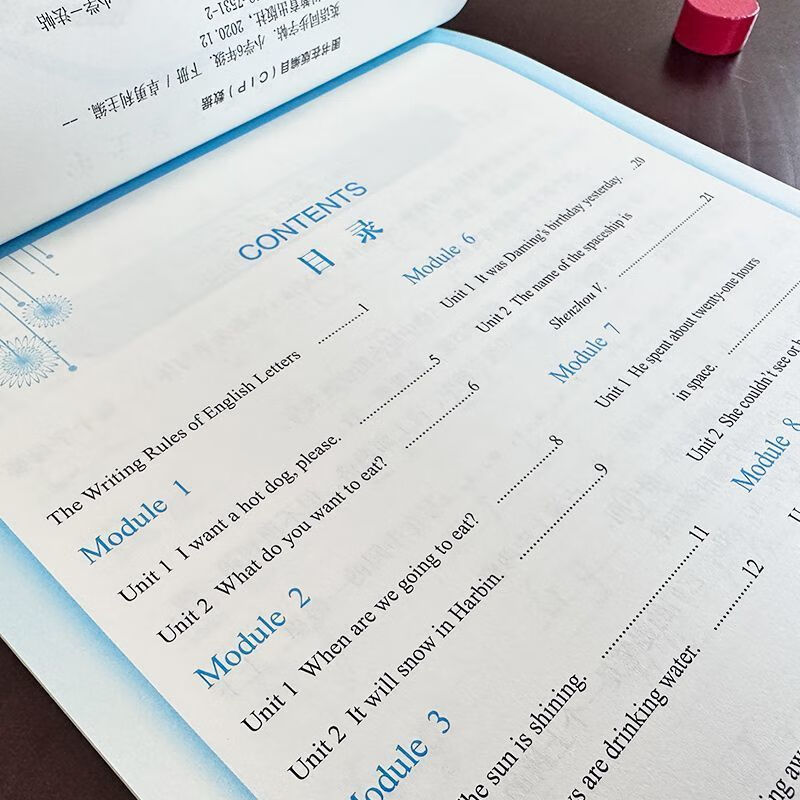 图书在版编目（CIP）数据
英语同步字帖. 小学6年级. 下册 / 卓勇利主编. 一
教育出版社, 2020. 12
7531-2
CONTENTS
目 录
The Writing Rules of English Letters ..........1
Module 1
Unit 1 I want a hot dog, please. ..........5
Unit 2 What do you want to eat? ..........6
Module 2
Unit 1 When are we going to eat? ..........8
Unit 2 It will snow in Harbin. ..........9
Module 3
the sun is shining. ..........11
are drinking water. ..........12
Module 6
Unit 1 It was Daming's birthday yesterday. ...20
Unit 2 The name of the spaceship is
Shenzhou V. ..........21
Module 7
Unit 1 He spent about twenty-one hours
in space. ..........
Unit 2 She couldn't see or
Module 8